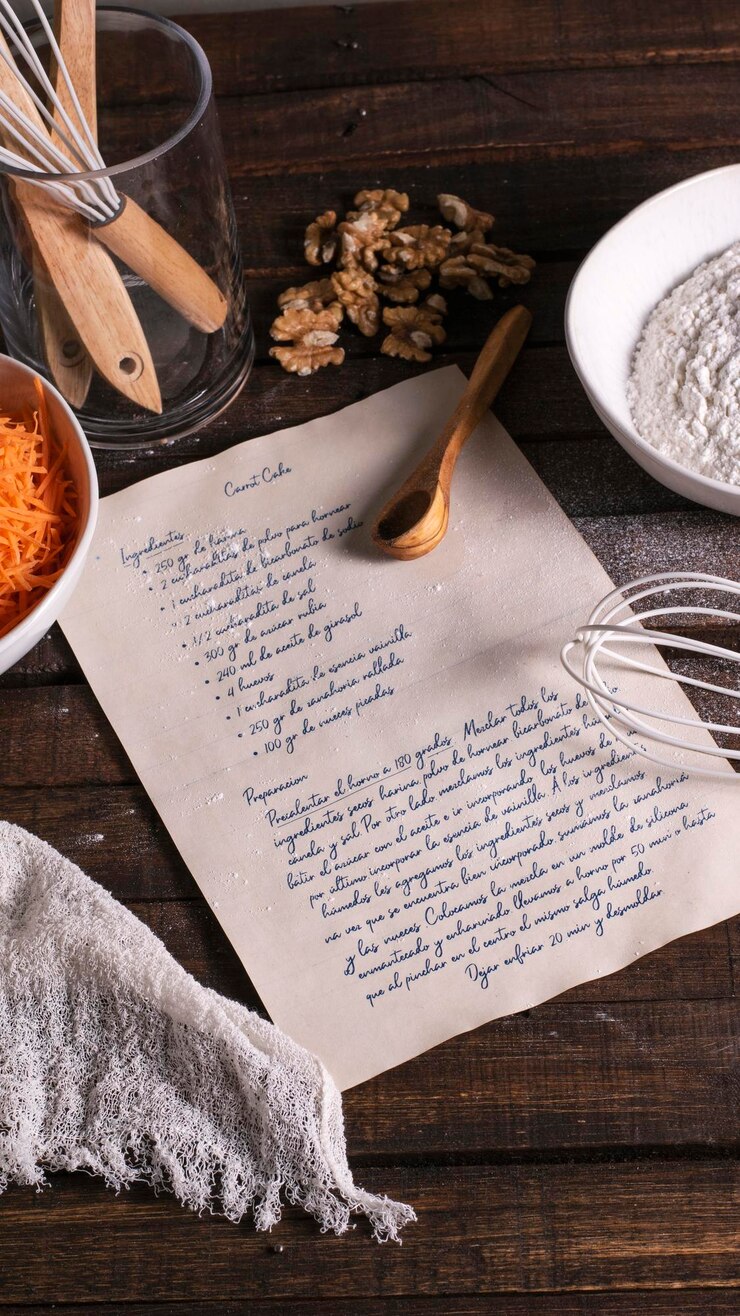 Carrot Cake
Ingredientes
• 250 gr de harina
• 2 cucharaditas de polvo para hornear
• 1 cucharadita de bicarbonato de sodio
• 2 cucharaditas de canela
• 1/2 cucharadita de sal
• 300 gr de azucar rubia
• 240 ml de aceite de girasol
• 4 huevos
• 1 cucharadita de esencia vainilla
• 250 gr de zanahoria rallada
• 100 gr de nueces picadas
Preparacion
Precalentar el horno a 180 grados. Mezclar todos los
ingredientes secos harina polvo de hornear, bicarbonato de
canela y sal. Por otro lado mezclamos los ingredientes
batir el azúcar con el aceite e ir incorporando los huevos de
por último incorporar la esencia de vainilla. A los ingredientes
húmedos les agregamos los ingredientes secos y mezclamos
na vez que se encuentra bien incorporado, sumamos la zanahoria
y las nueces. Colocamos la mezcla en un molde de silicona
enmantecado y enharinado llevamos a horno por 50 min o hasta
que al pinchar en el centro el mismo salga húmedo.
Dejar enfriar 20 min y desmoldar.